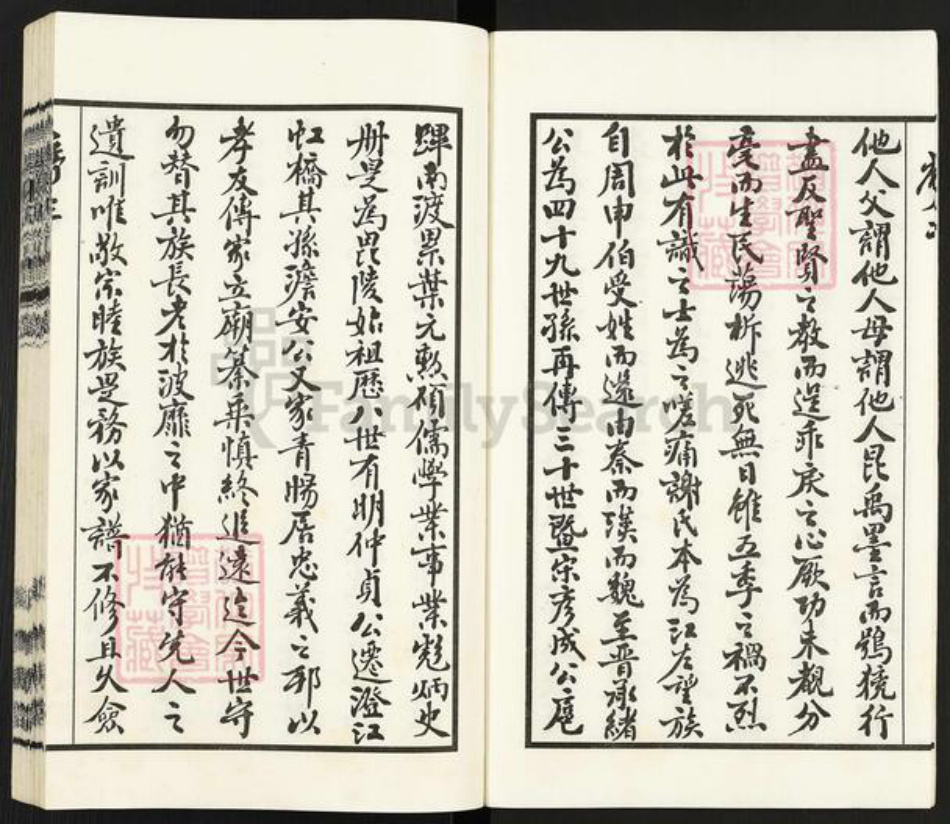 他人父謂他人母謂他人昆禹墨言而鴞獍行
盡反聖賢之教而逞乖戾之心厥功未覩分
毫而生民蕩析逃死無日雖五季之禍不烈
於此有識之士為之嗟痛謝氏本為江左望族
自周申伯受姓而還由秦而漢而魏至晉承緒
公為四十九世孫再傳三十世暨宋彥成公扈
蹕南渡累葉元勳碩儒學業事業彪炳史
冊是為毘陵始祖歷八世有明仲貞公遷澄江
虹橋其孫澹安公又家青暘居忠義之邦以
孝友傳家立廟纂乘慎終追遠迄今世守
勿替其族長老於波靡之中猶能守先人之
遺訓唯敬宗睦族是務以家譜不修且久僉
FamilySearch